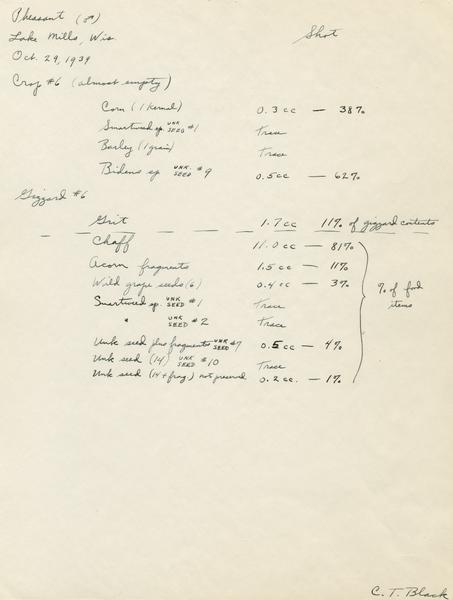 Pheasant (♂)
Shot
Lake Mills, Wis.
Oct. 29, 1939
Crop #6 (almost empty)
Corn (1 kernel) 0.3 cc — 38%
Smartweed sp. UNK SEED #1 Trace
Barley (1 grain) Trace
Bidens sp UNK. SEED #9 0.5cc — 62%
Gizzard #6
Grit 1.7 cc 11% of gizzard contents
Chaff 11.0 cc — 81%
Acorn fragments 1.5 cc — 11%
Wild grape seeds (6) 0.4 cc — 3%
% of food items
Smartweed sp. UNK SEED #1 Trace
" UNK SEED #2 Trace
Unk seed plus fragments UNK SEED #7 0.5 cc — 4%
Unk seed (14) UNK SEED #10 Trace
Unk seed (14 + frag.) not preserved 0.2 cc. — 1%
C. T. Black